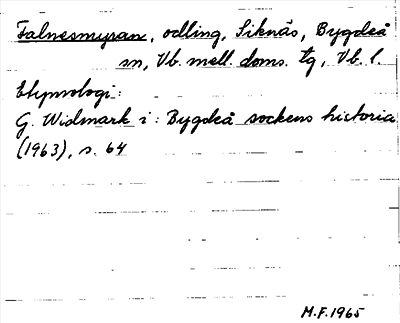 Falnesmyran, odling, Siknäs, Bygdeå
sn, Vb. mell. doms. tg, Vb. l.
Etymologi:
G. Widmark i: Bygdeå sockens historia
(1963), s. 64
M.F. 1965